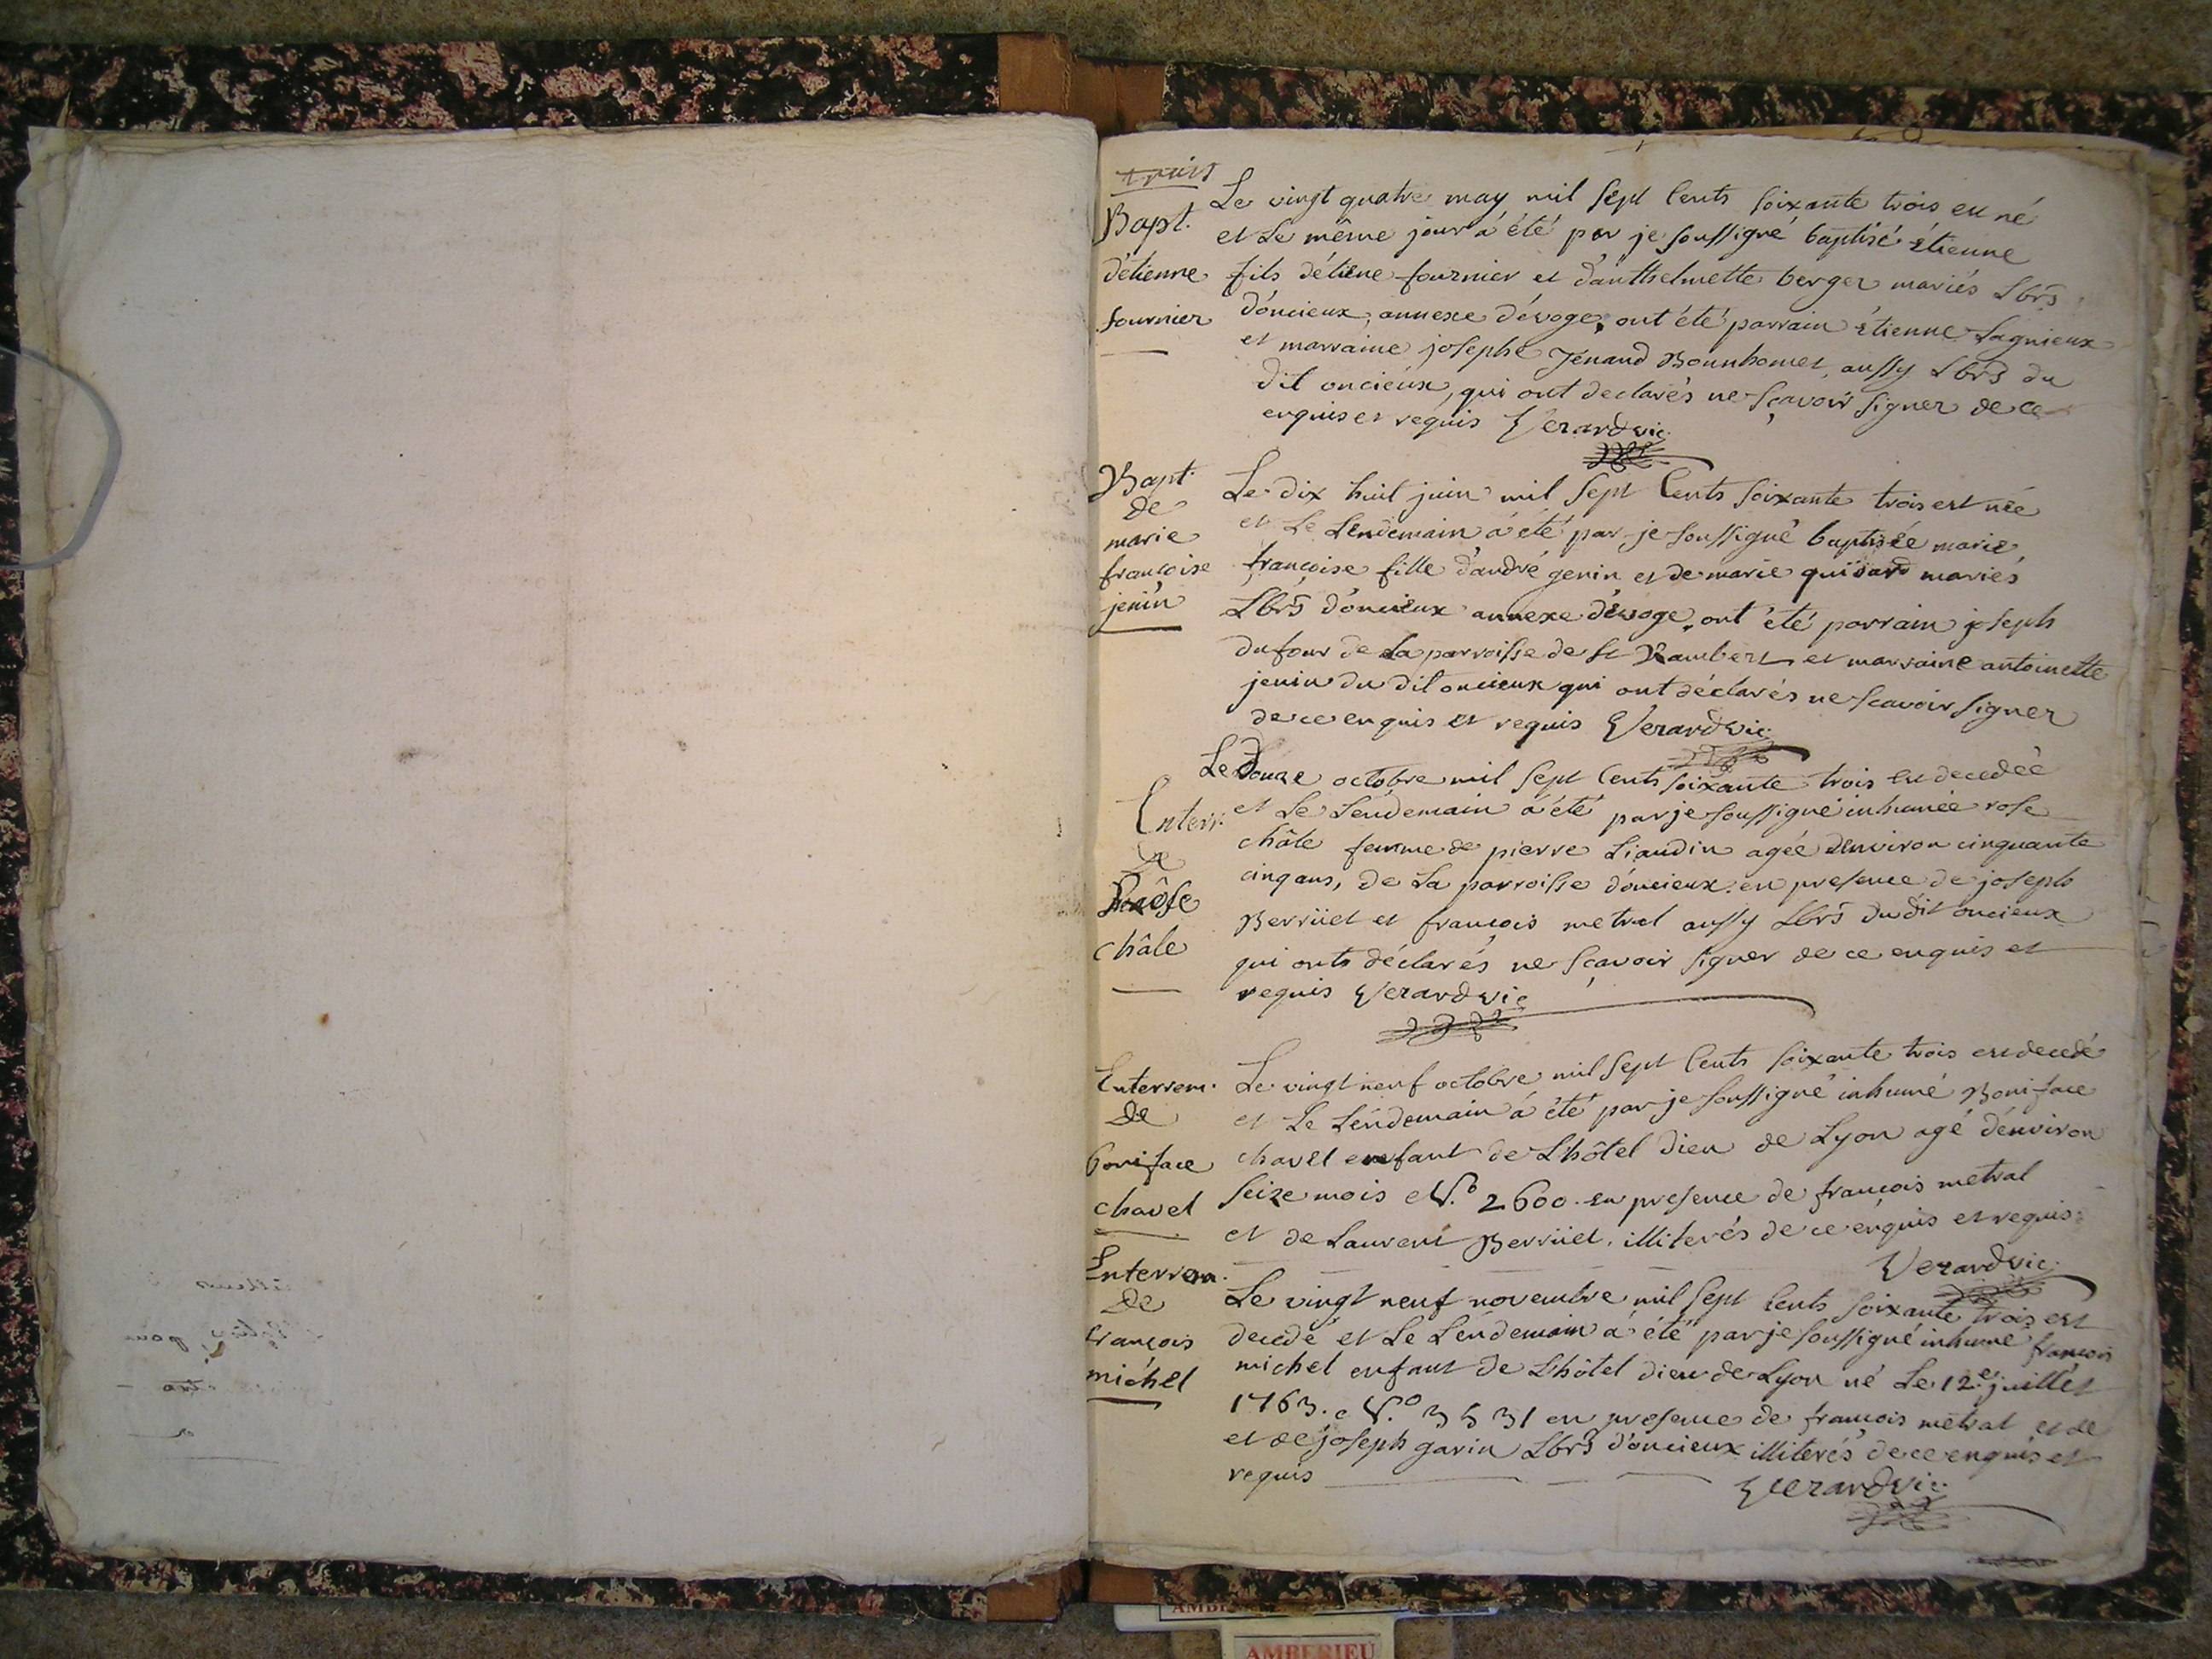 trois
Bapt.
d'étienne
fournier
Le vingt quatre may mil sept cents soixante trois est né
et Le même jour a été par je soussigné baptisé étienne
fils d'étiene fournier et d'anthelmette berger mariés Lbrs
d'oncieux, annexe d'évoge, ont été parrain étienne Lagnieux
et marraine josephe Jenaud Bonnhomet, aussy Lbrs du
dit oncieux, qui ont declarés ne sçavoir signer de ce
enquis et requis Verard vic.
Bapt.
de
marie
françoise
jenin
Le dix huit juin mil sept cents soixante trois est née
et Le Lendemain a été par je soussigné baptisée marie
françoise fille d'andré genin et de marie quisard mariés
Lbrs d'oncieux annexe d'évoge, ont été parrain joseph
dufour de La parroisse de st Rambert et marraine antoinette
jenin du dit oncieux qui ont déclarés ne scavoir signer
de ce enquis et requis Verard vic.
Enterr.
de
Rôse
châle
Le Douze octobre mil sept cents soixante trois est decedée
et Le Lendemain a été par je soussigné inhumée rose
châle femme de pierre Liaudin agée d'environ cinquante
cinq ans, de La parroisse d'oncieux. en presence de joseph
Berrüet et françois metral aussy Lbrs du dit oncieux
qui onts déclarés ne sçavoir signer de ce enquis et
requis Verard vic
Enterrem.
de
boniface
chavel
Le vingt neuf octobre mil sept cents soixante trois est decedé
et Le Lendemain a été par je soussigné inhumé Boniface
chavel enfant de L'hôtel Dieu de Lyon agé d'environ
seize mois N.o 2600. en presence de françois metral
et de Laurent Berrüet. illiterés de ce enquis et requis.
Verard vic.
Enterrem.
de
françois
michel
Le vingt neuf novembre mil sept cents soixante trois est
decedé et Le Lendemain a été par je soussigné inhumé françois
michel enfant de L'hôtel dieu de Lyon né Le 12e juillet
1763. N.o 3531 en presence de françois métral et de
et de joseph garin Lbrs d'oncieux illiterés de ce enquis et
requis
Verard vic.
AMBERIEU